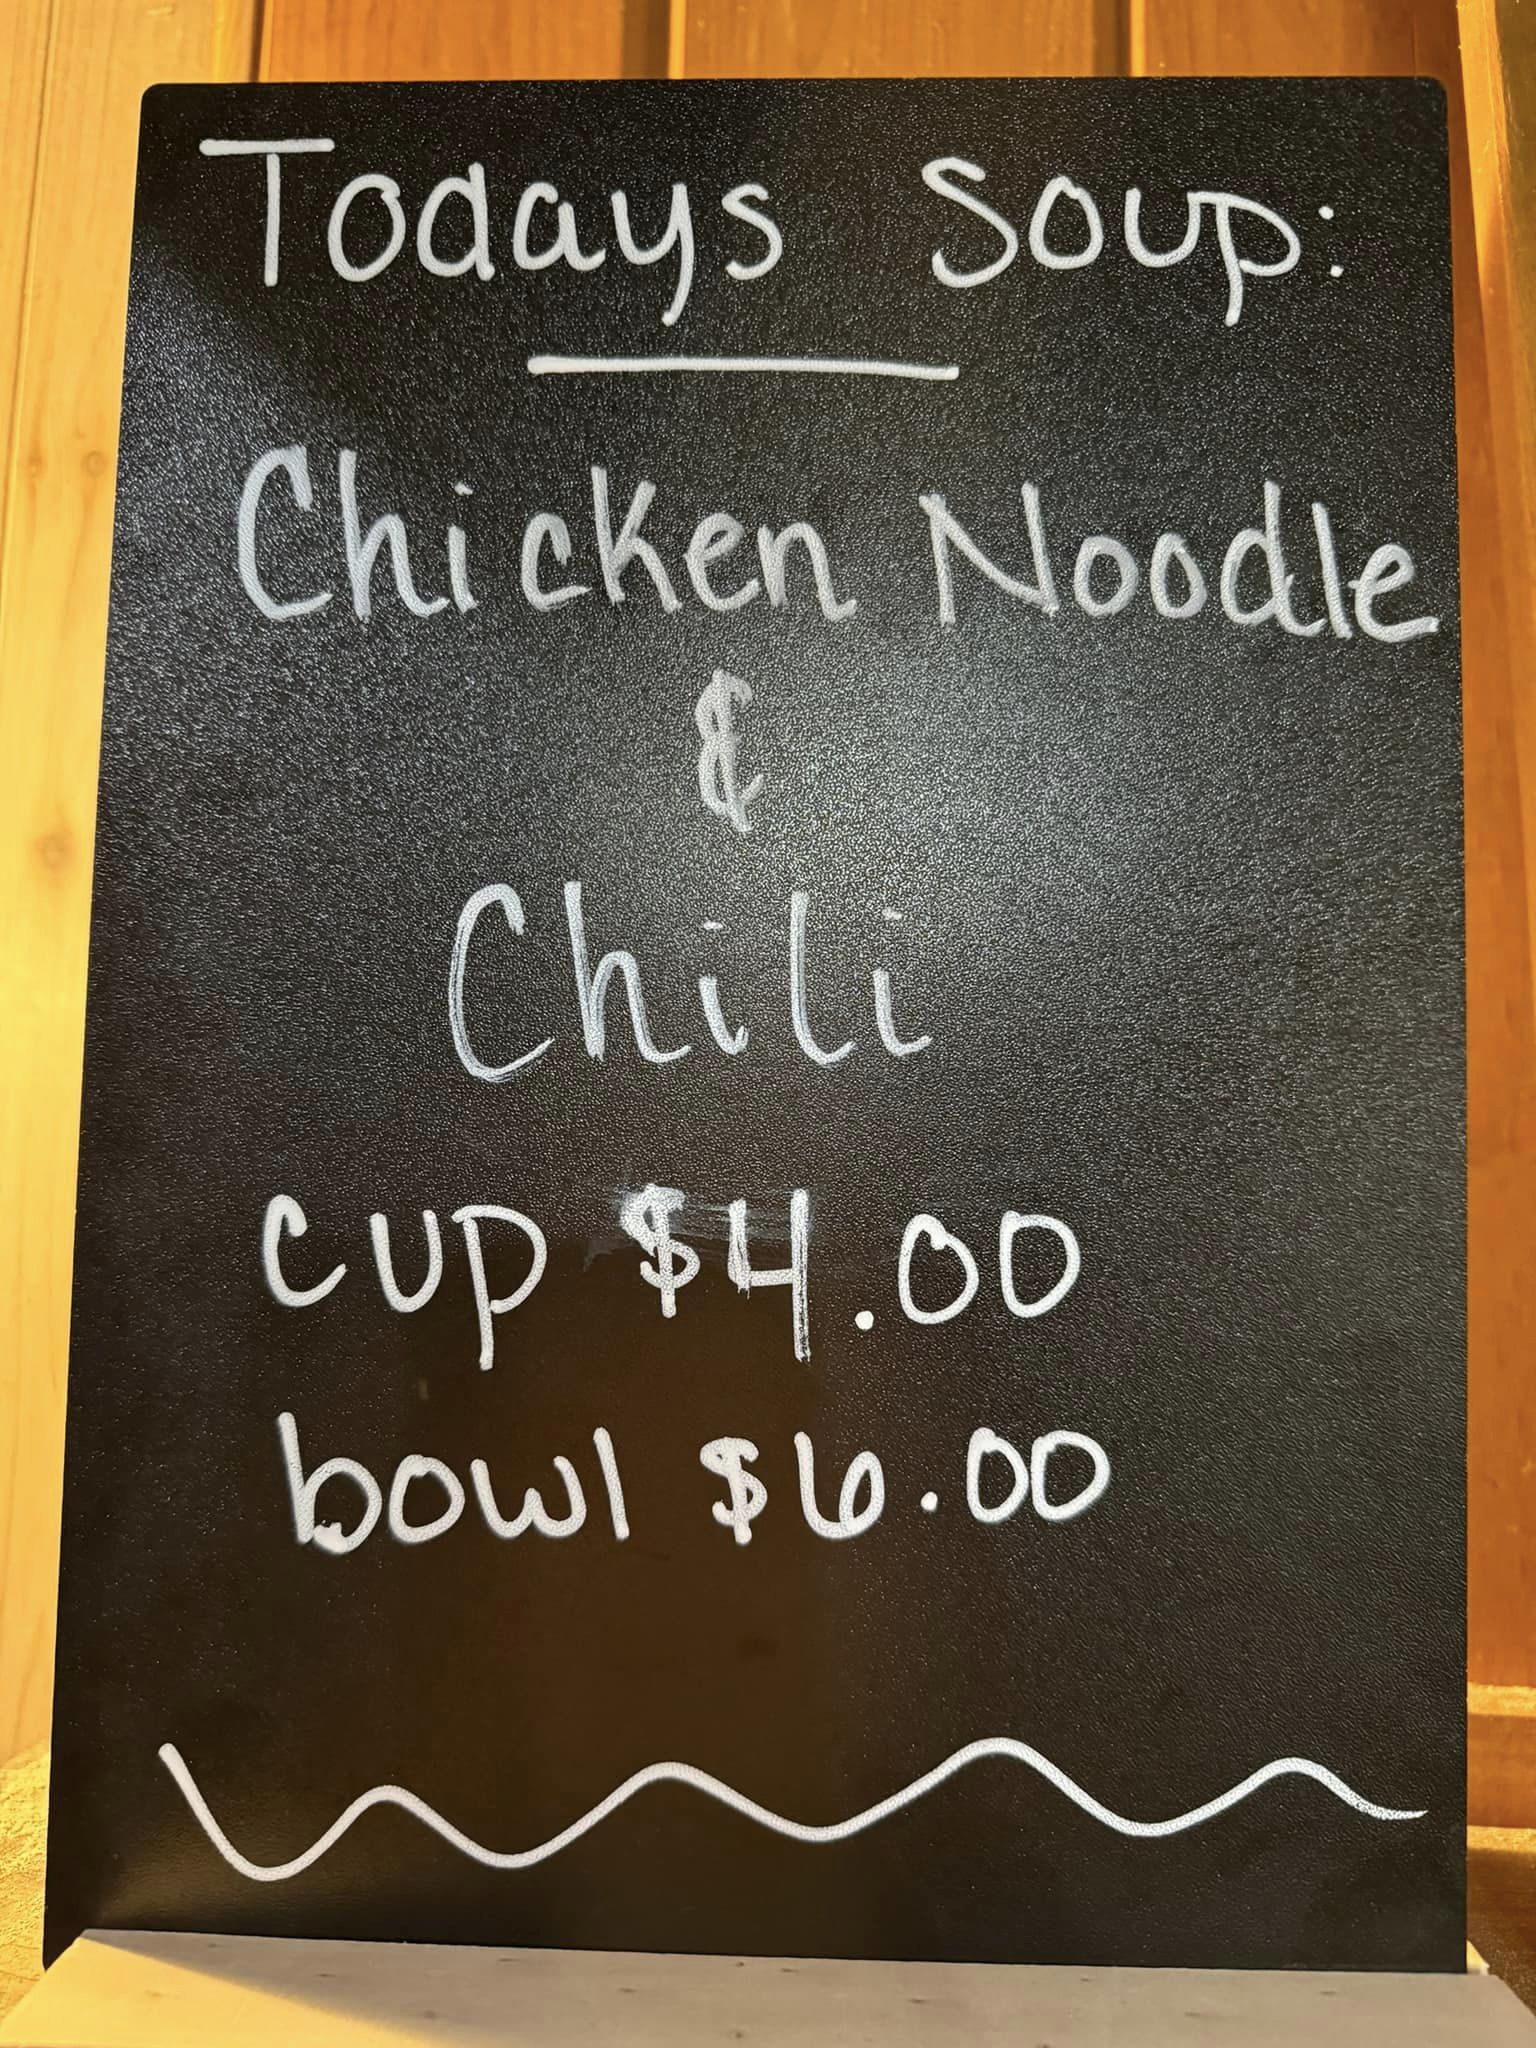 Todays Soup:
Chicken Noodle
&
Chili
cup $4.00
bowl $6.00